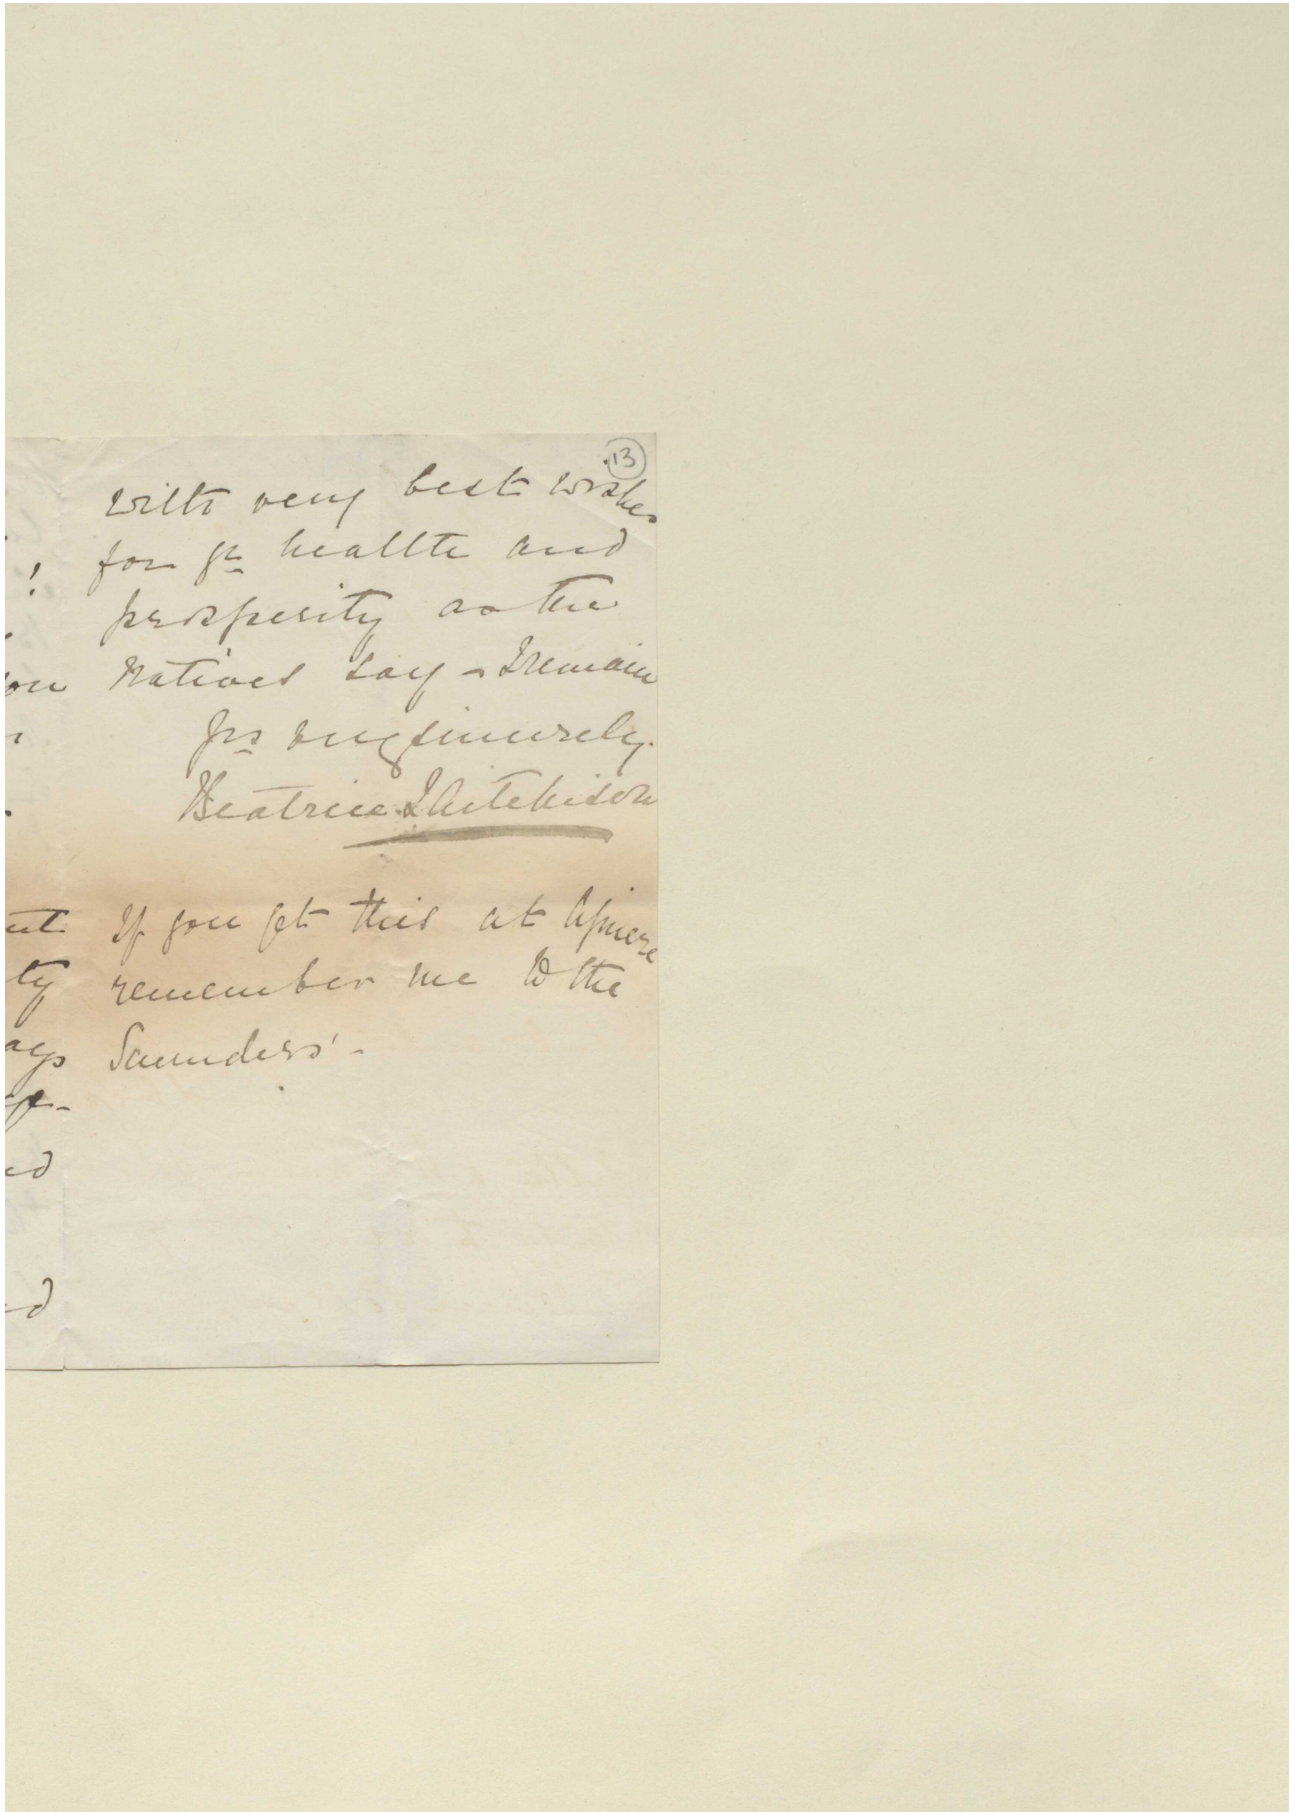 13
with very best wishes
for yr health and
prosperity as the
natives say - I remain
Yrs very sincerely.
Beatrice
If you get this at Ajmere
remember me to the
Saunders' -